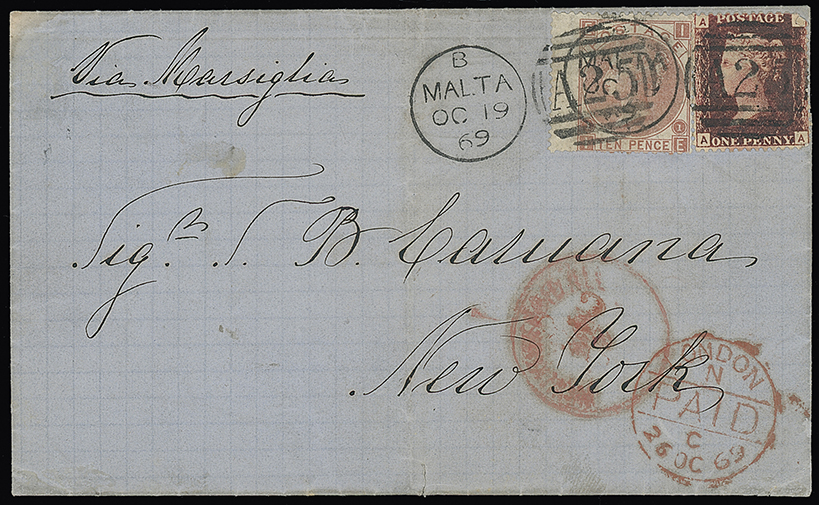 Via Marsiglia
B
MALTA
OC 19
69
POSTAGE
I
A 25 M
TEN PENCE
1
E
POSTAGE
A
A 2
A ONE PENNY A
Sig.r T. B. Caruana
New York
LONDON
PAID
C
26 OC 69